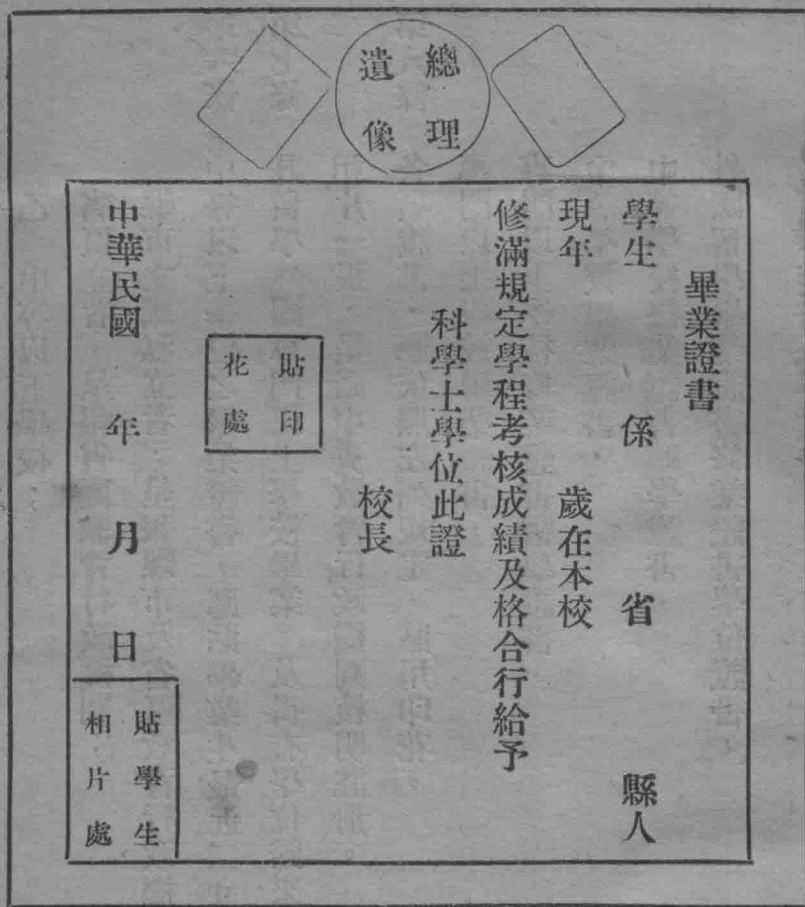 總理
遺像
畢業證書
學生 係 省 縣人
現年 歲在本校
修滿規定學程考核成績及格合行給予
科學士學位此證
校長
貼印
花處
中華民國 年 月 日
貼學生
相片處